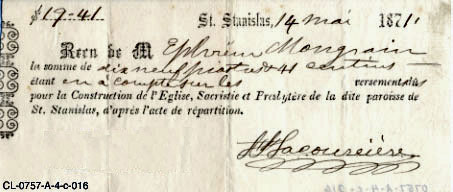 $19-41 St. Stanislas, 14 mai 1871
Recu de M Ephrem Mongrain
la somme de dix neuf piastres & 41 centins
étant en à compte sur les versements dûs
pour la Construction de l'Eglise, Sacristie et Presbytère de la dite paroisse de
St. Stanislas, d'après l'acte de répartition.
Lacoursière
CL-0757-A-4-c-016